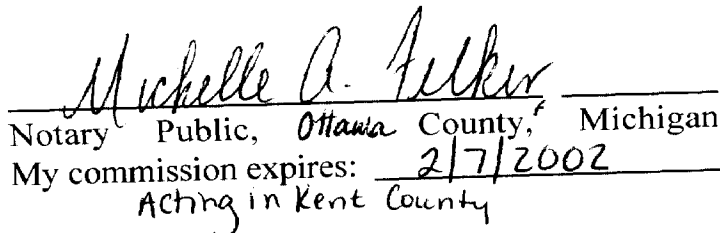 Michelle A. Felker
Notary Public, Ottawa County, Michigan
My commission expires: 2/7/2002
Acting in Kent County